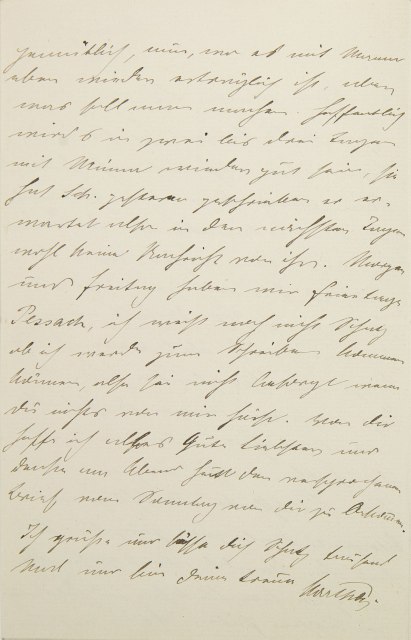 gemütlich, nun, wo es mit Mama
eben wieder erträglich ist, aber
was soll man machen. Hoffentlich
wird's in zwei bis drei Tagen
mit Minna wieder gut sein, sie
hat Sch. gestern geschrieben er er-
wartet also in den nächsten Tagen
wohl keine Nachricht von ihr. Morgen
und Freitag haben wir Feiertage
Pessach, ich weiß noch nicht Schatz
ob ich werde zum Schreiben kommen
können, also sei nicht besorgt wenn
Du nichts von mir hörst. Von Dir
hoffe ich alles Gute Liebster und
denke am Abend den versprochenen
Brief vom Samstag von Dir zu
Ich grüße und küsse Dich Schatz tausend
Mal und bin Deine treue Martha.